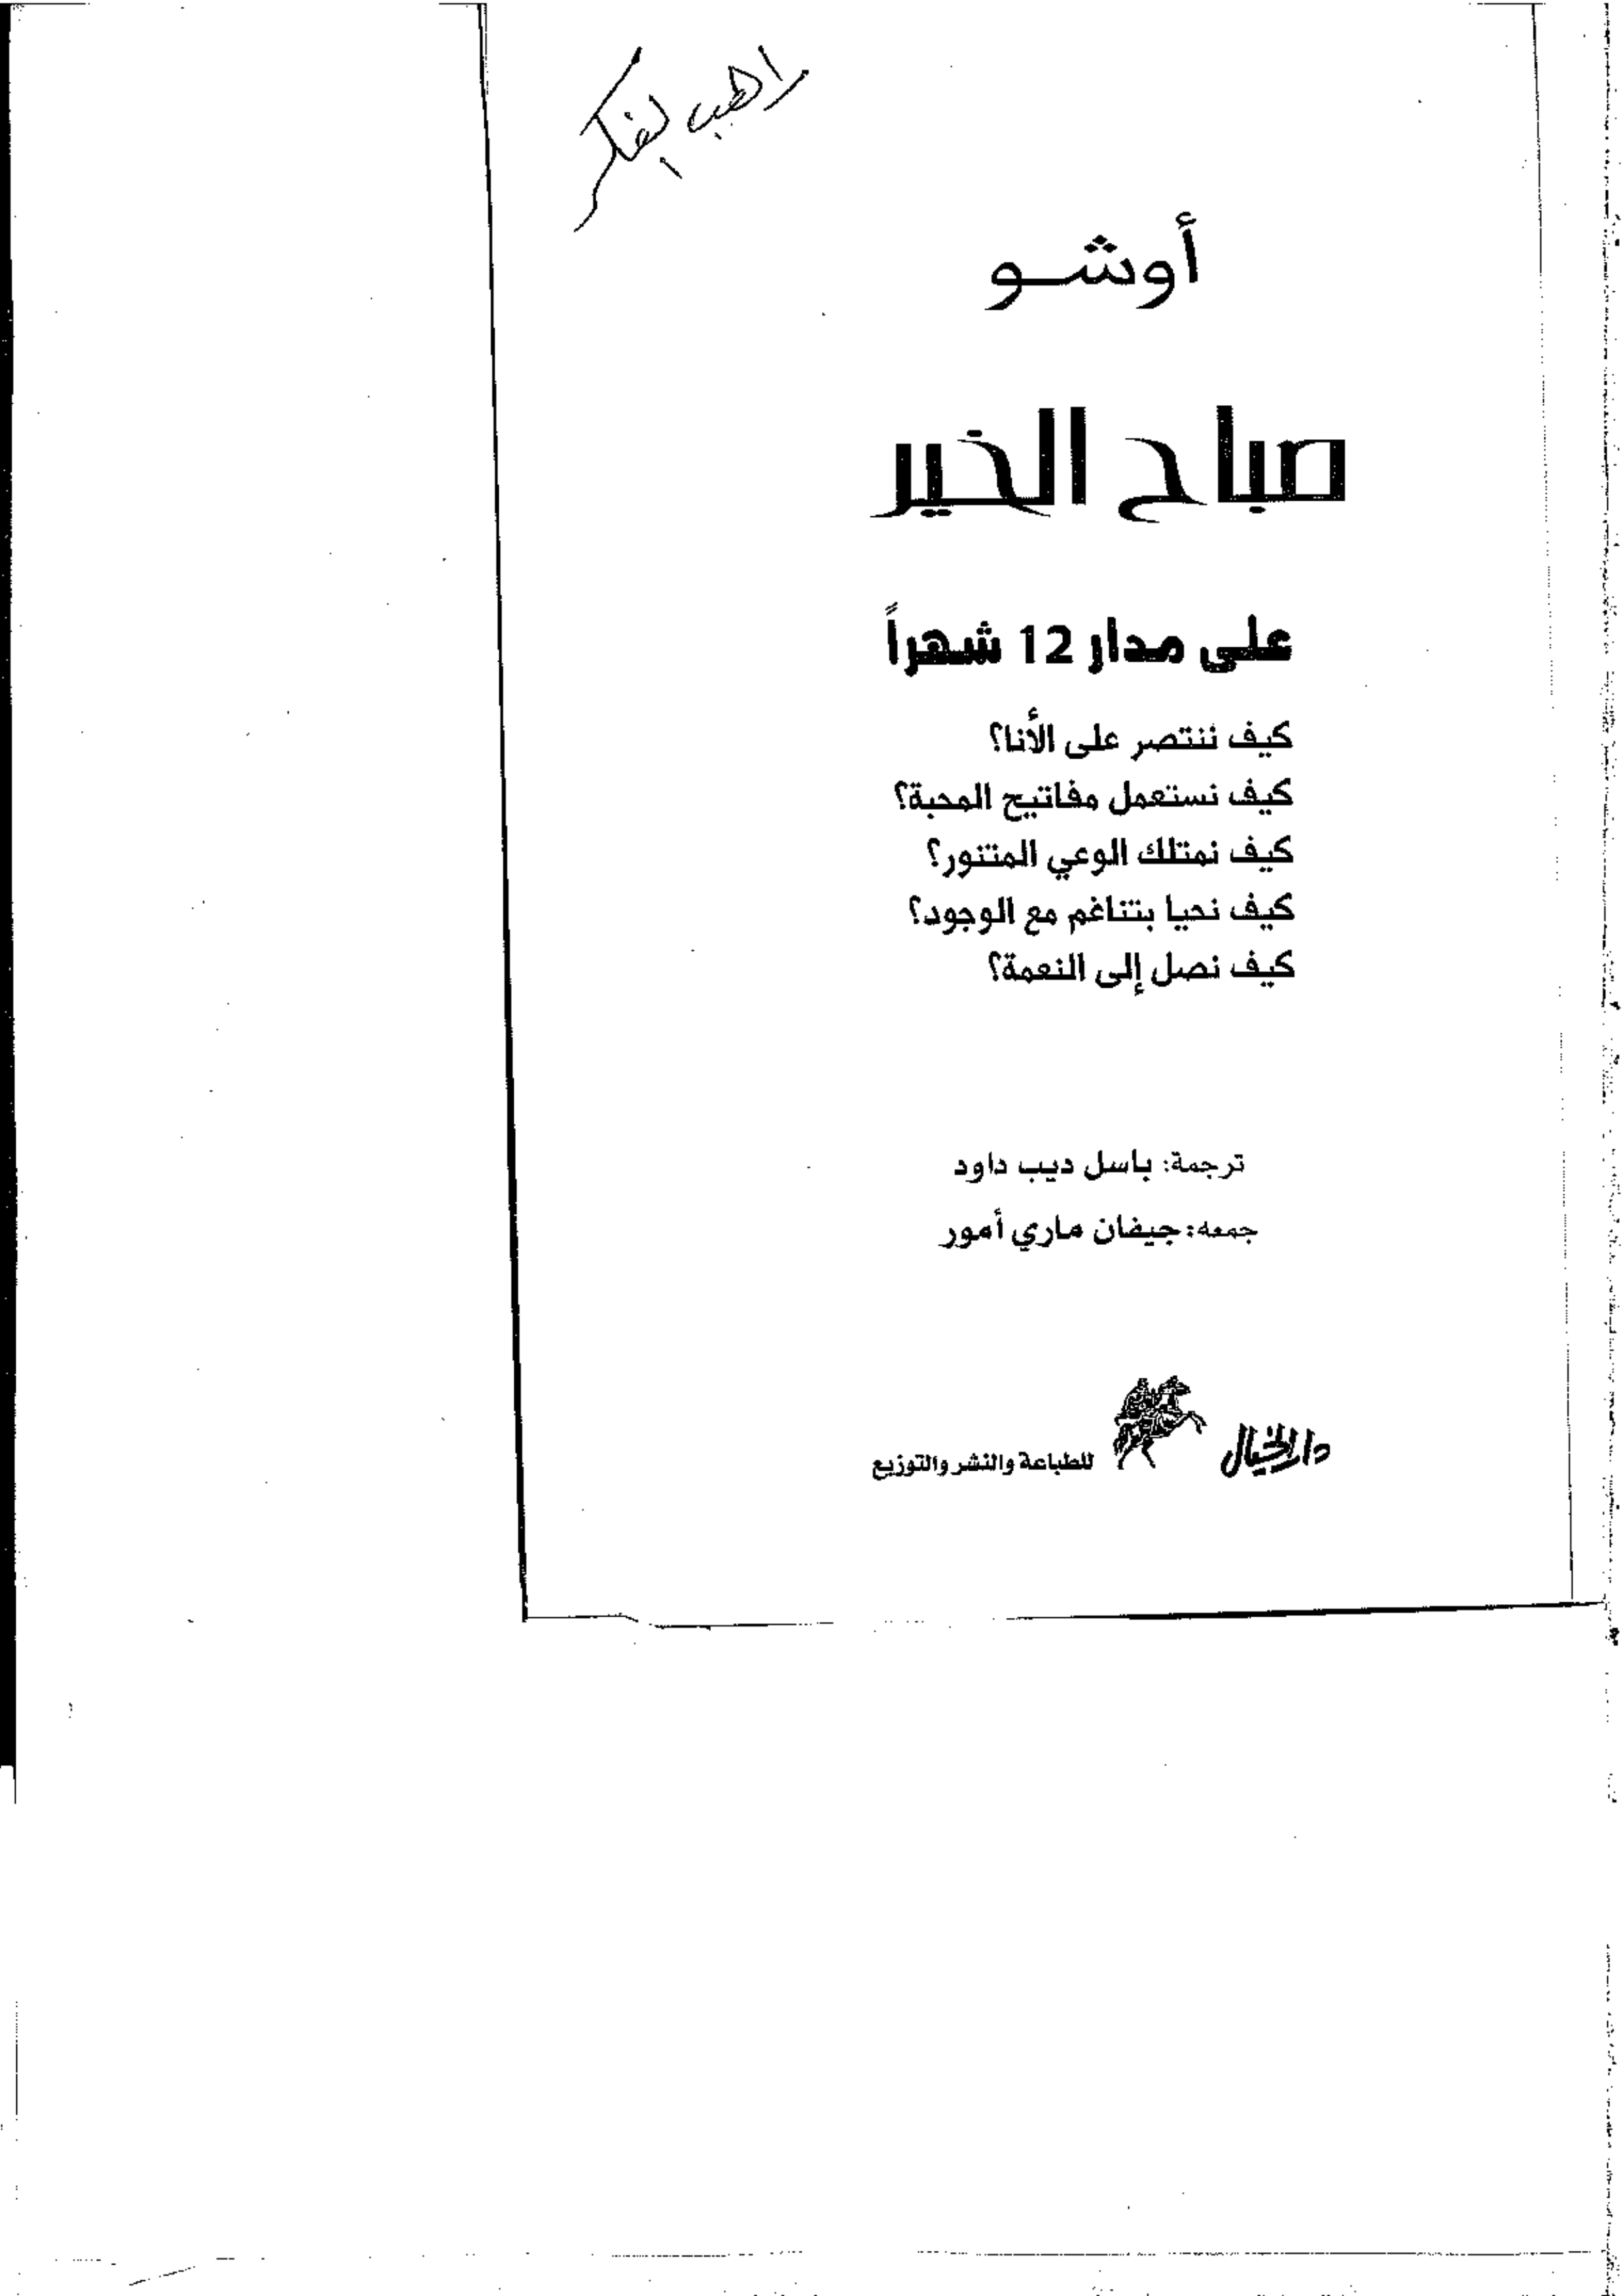 أوشو
صباح الخير
على مدار 12 شهراً
كيف ننتصر على الأنا؟
كيف نستعمل مفاتيح المحبة؟
كيف نمتلك الوعي المتنور؟
كيف نحيا بتناغم مع الوجود؟
كيف نصل إلى النعمة؟
ترجمة: باسل ديب داود
جمعه: جيفان ماري أمور
دار الخيال للطباعة والنشر والتوزيع